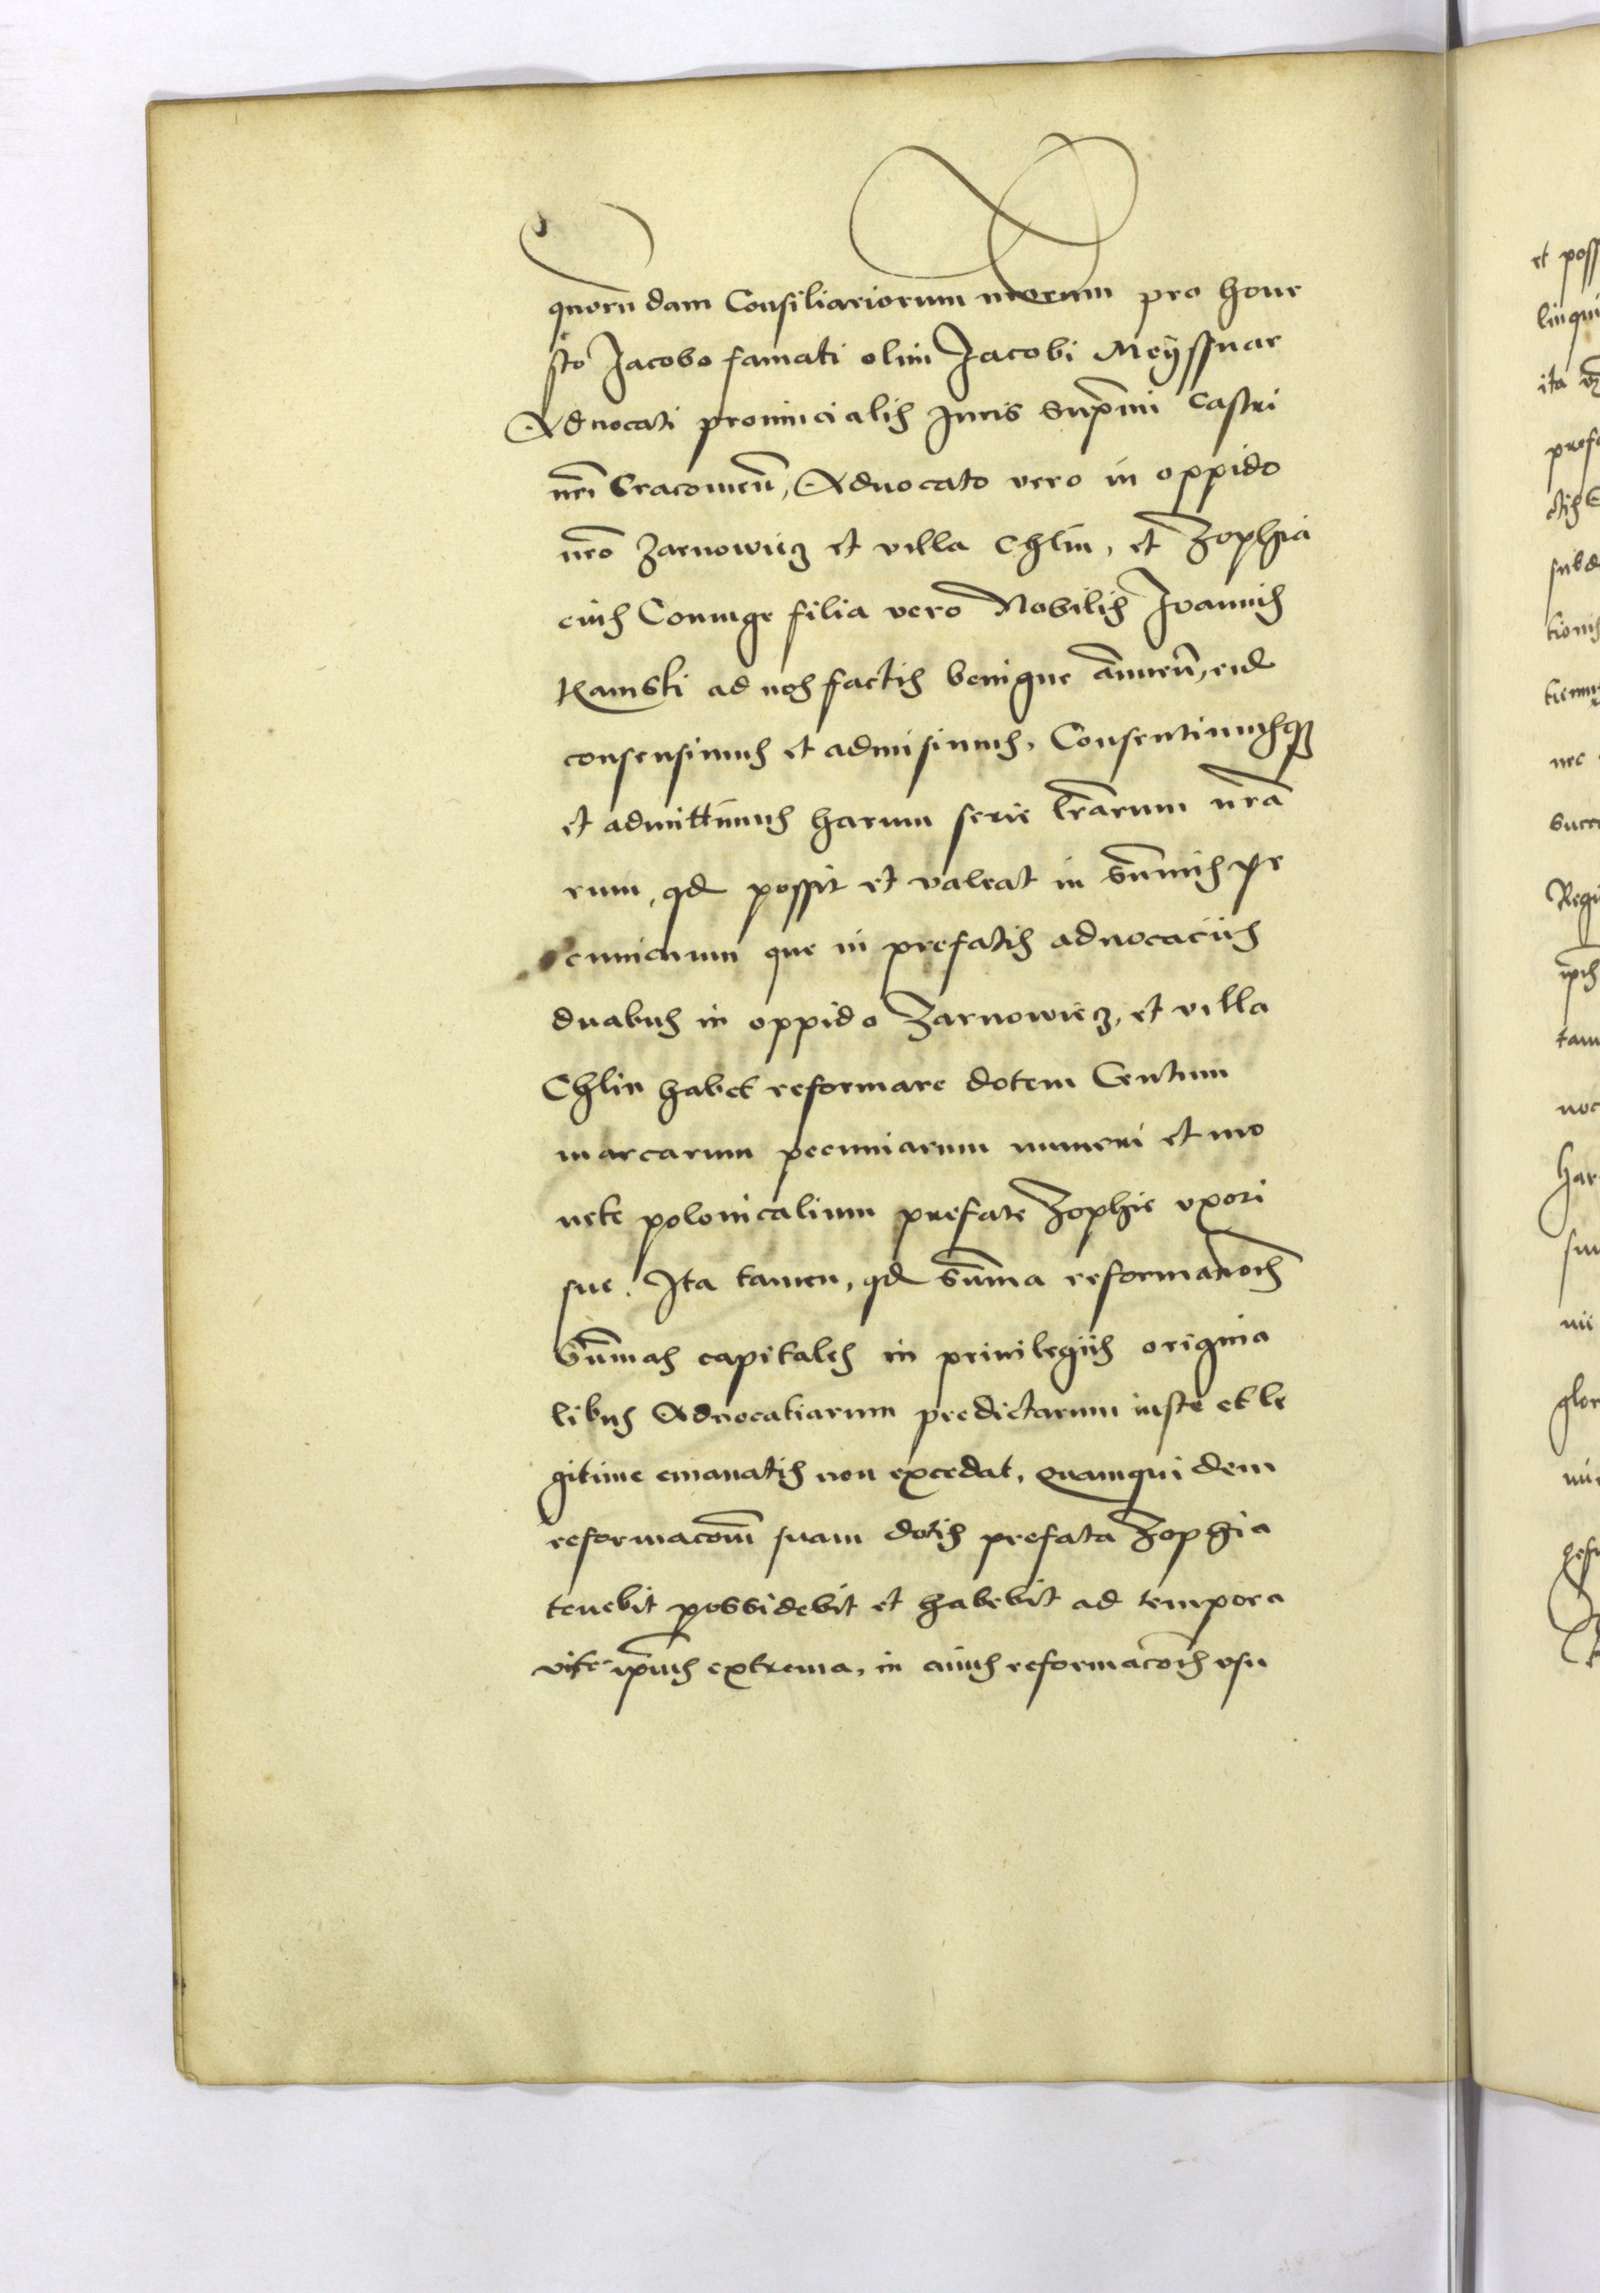 quorundam Consiliariorum nrorum pro hone
sto Jacobo famati olim Jacobi Meyssnar
Advocati provincialis Juris Supremi Castri
nri Cracovien, Advocato vero in oppido
nro Zarnowiecz et villa Chlin, et Zophia
eius Coniuge filia vero Nobilis Joannis
Kamski ad nos factis benigne annuen, eid
consensimus et admisimus, Consentimusq
et admittimus harum serie lrarum nrã
rum, qd possit et valeat in Sum̃is pe
cuniarum que in prefatis advocacijs
duabus in oppido Zarnowiecz, et villa
Chlin habet reformare dotem Centum
marcarum pecuniarum numeri et mo
nete polonicalium prefate Zophie uxori
sue. Ita tamen, qd Sum̃a reformanois
Sum̃as capitales in privilegijs origina
libus Advocatiarum predictarum iuste et le
gitime emanatis non excedat, Quamquidem
reformacom̃ suam dotis prefata Zophia
tenebit possidebit et habebit ad tempora
vite ip̃ius extrema, in cuius reformacois usu
et poss
linqui
ita
prefa
ctis
subd
tionis
nec
succe
Regi
tam
har
glor